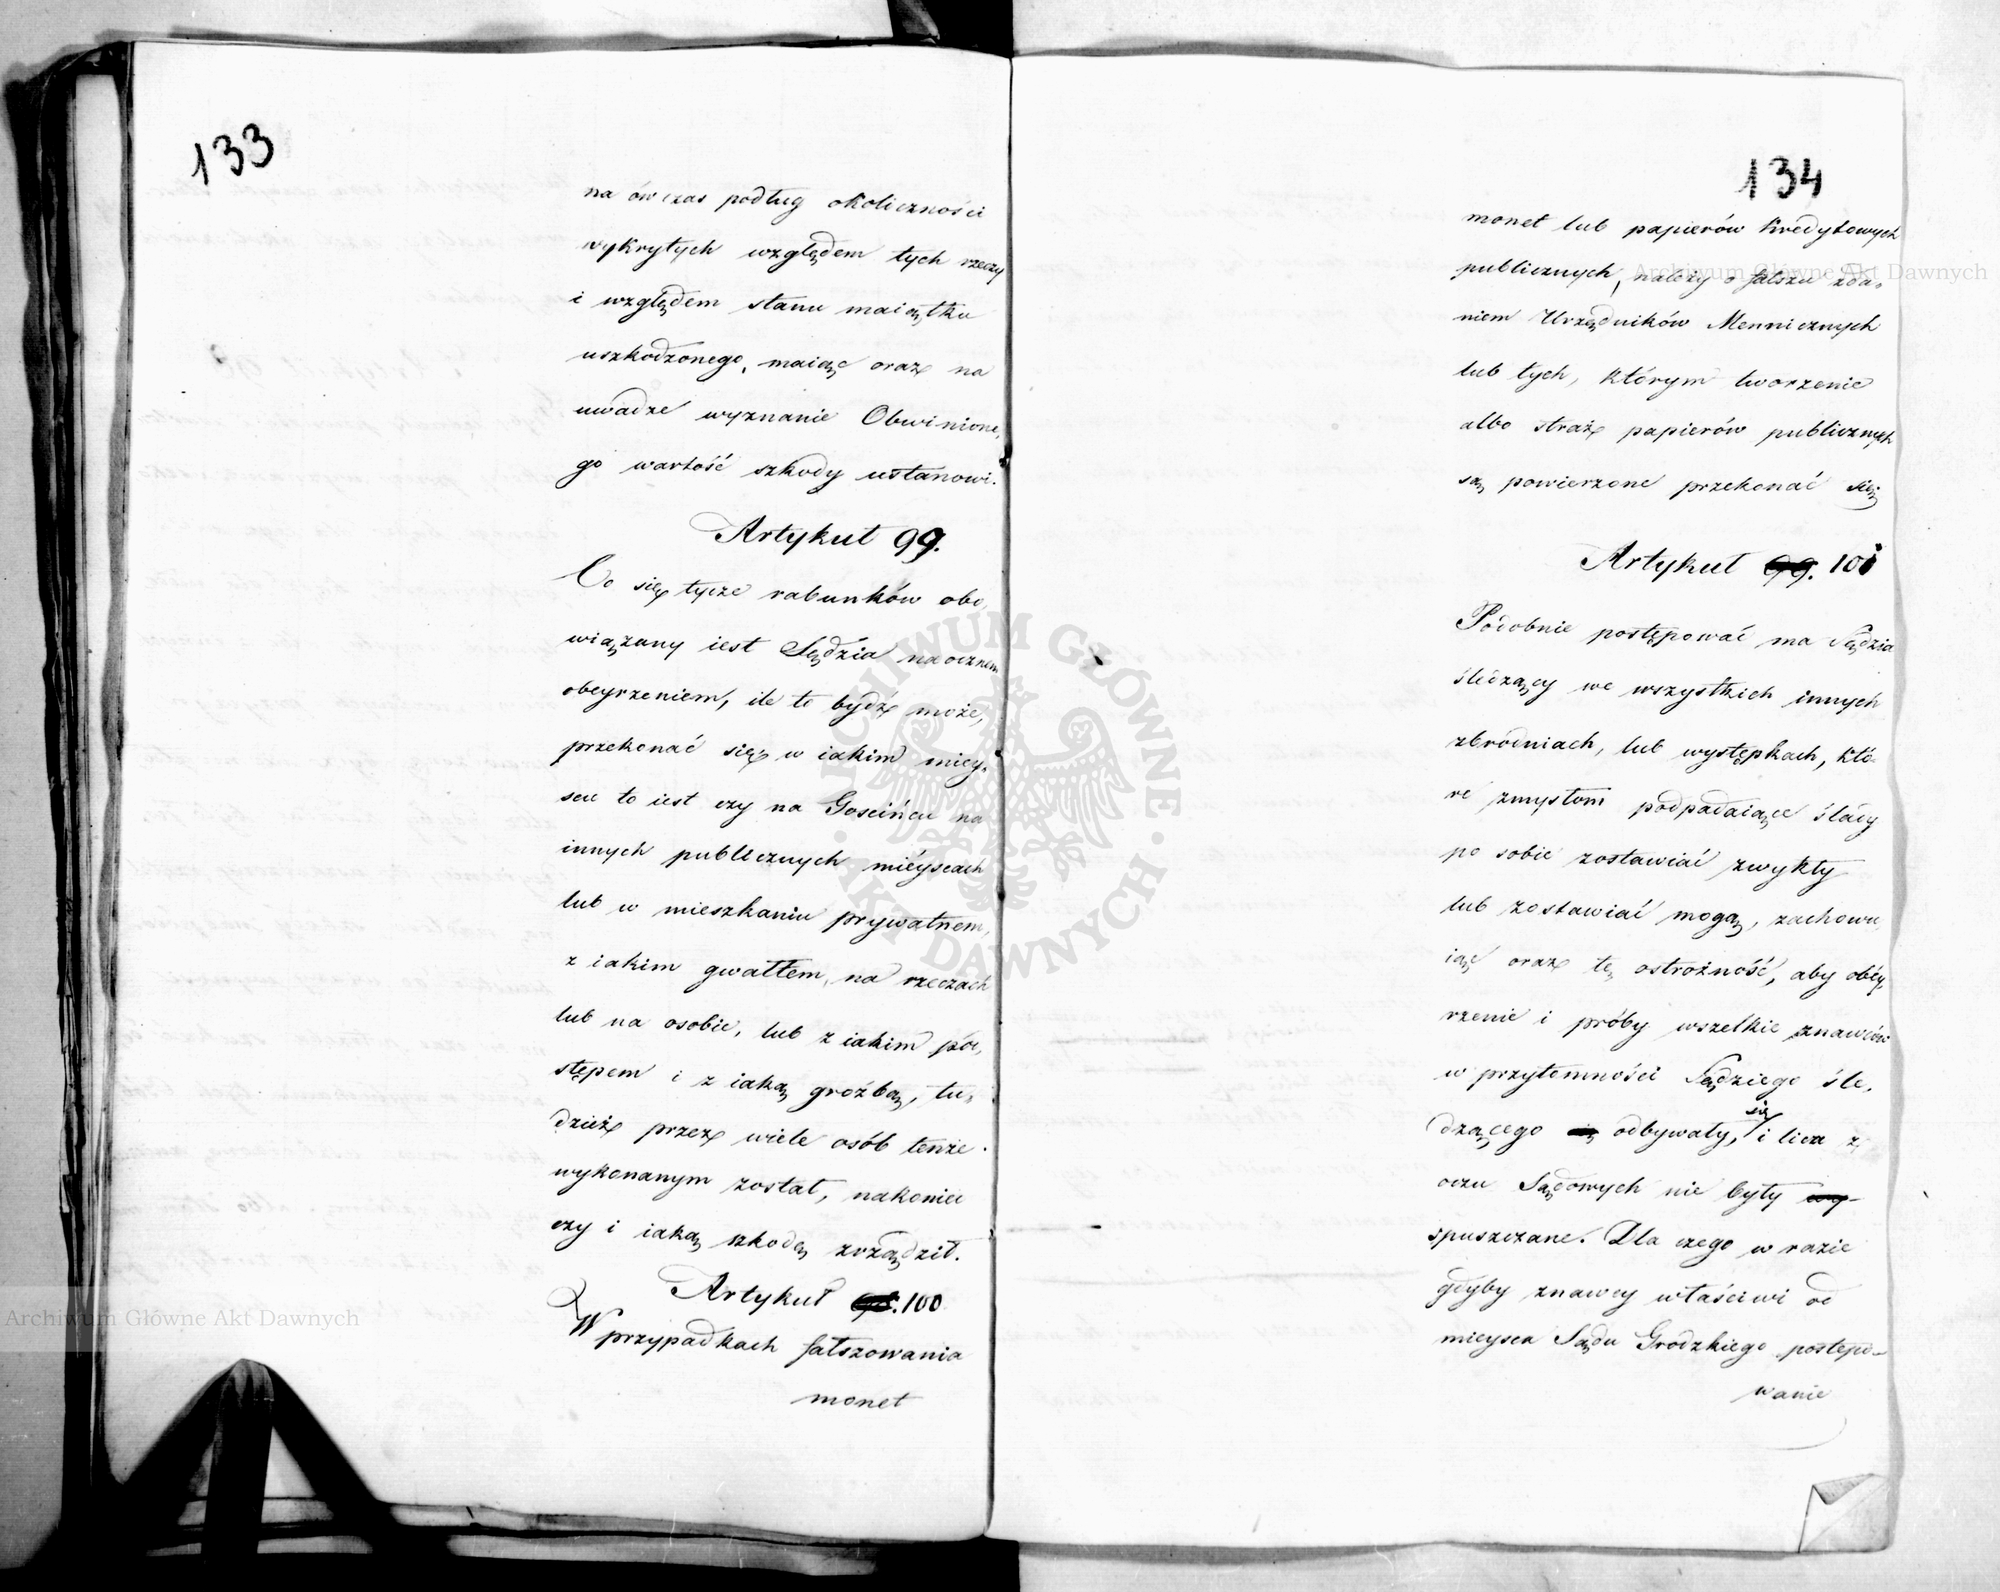 133
na ów czas podług okoliczności
wykrytych względem tych rzeczy
i względem stanu maiątku
uszkodzonego, maiąc oraz na
uwadze wyznanie Obwinione,
go wartość szkody ustanowi.
Artykuł 99.
Co się tycze rabunków obo,
wiązany iest Sędzia naocznem
obeyrzeniem, ile to bydź może,
przekonać się w iakim miey,
scu to iest czy na Gościńcu na
innych publicznych mieyscach
lub w mieszkaniu prywatnem,
z iakim gwałtem, na rzeczach
lub na osobie, lub z iakim pod,
stępem i z iaką groźbą, tu,
dzież przez wiele osób tenże
wykonanym został, nakoniec
czy i iaką szkodę zrządził.
Artykuł 100
W przypadkach fałszowania
monet
134
monet lub papierów kredytowych
publicznych, należy o fałszu zda,
niem Urzędników Mennicznych
lub tych, którym tworzenie
albo straż papierów publicznych
są powierzone przekonać się
Artykuł 99. 101
Podobnie postępować ma Sędzia
śledzący we wszystkich innych
zbrodniach, lub występkach, któ,
re zmysłom podpadaiące ślady
po sobie zostawiać zwykły
lub zostawiać mogą, zachowu,
iąc oraz tę ostrożność, aby obéy,
rzenie i próby wszelkie znawców
w przytomności Sędziego śle,
dzącego się odbywały, się i lica z
oczu Sądowych nie były
spuszczane. Dla czego w razie
gdyby znawcy właściwi od
mieysca Sądu Grodzkiego postępo-
wanie
Archiwum Główne Akt Dawnych
Archiwum Główne Akt Dawnych
ARCHIWUM GŁÓWNE · AKT DAWNYCH ·